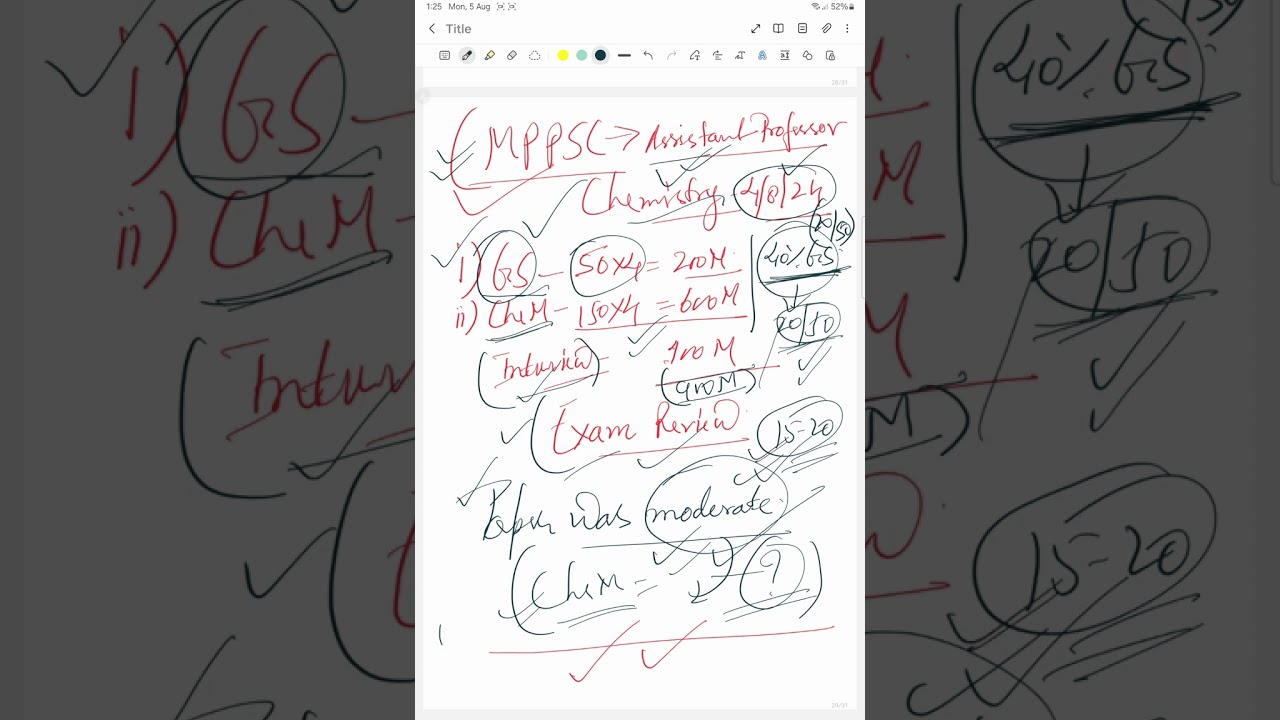 1:25 Mon, 5 Aug
52%
Title
28/31
MPPSC → Assistant Professor
Chemistry - 4/8/24
(20/50)
i) GS - 50x4 = 200M
40% GS
ii) CheM - 150x4 = 600M
20/50
(Interview) 100M
(900M)
(Exam Review 15-20
Paper was moderate
(CheM = ?)
29/31